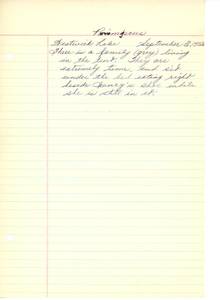 Peromyscus
Bostwick Lake September 8, 19
There is a family (grey) living
in the tent. They are
extremely tame, and sit
under the bed eating right
beside Nancy's shoe while
she is still in it.